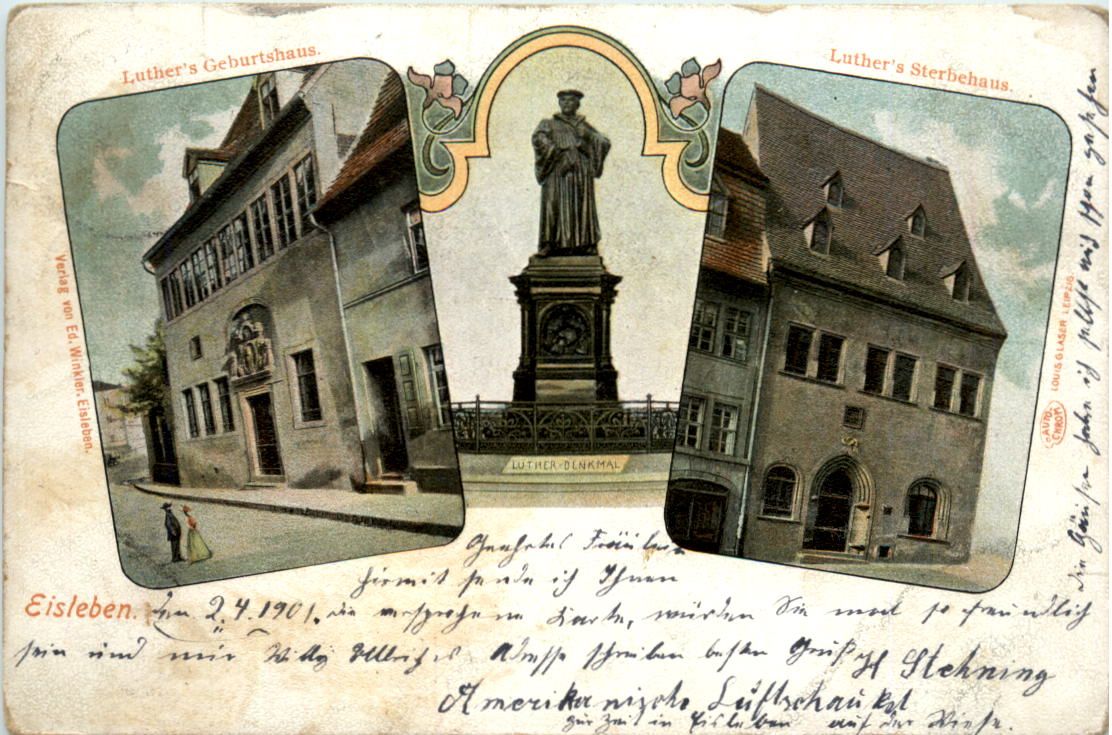 Luther's Geburtshaus.
Luther's Sterbehaus.
Verlag von Ed. Winkler, Eisleben.
LOUIS GLASER LEIPZIG.
AUTO-CHROM
LUTHER-DENKMAL
Geehrtes Fräulein
hiermit sende ich Ihnen
Eisleben. den 2.4.1901. die versprochene Karte, würden Sie mal so freundlich
sein und mir Willy Ullrichs Adresse schreiben besten Gruß H Stehning
Amerikanische Luftschaukel
zur Zeit in Eisleben auf der Wiese.
die habe ich selbst